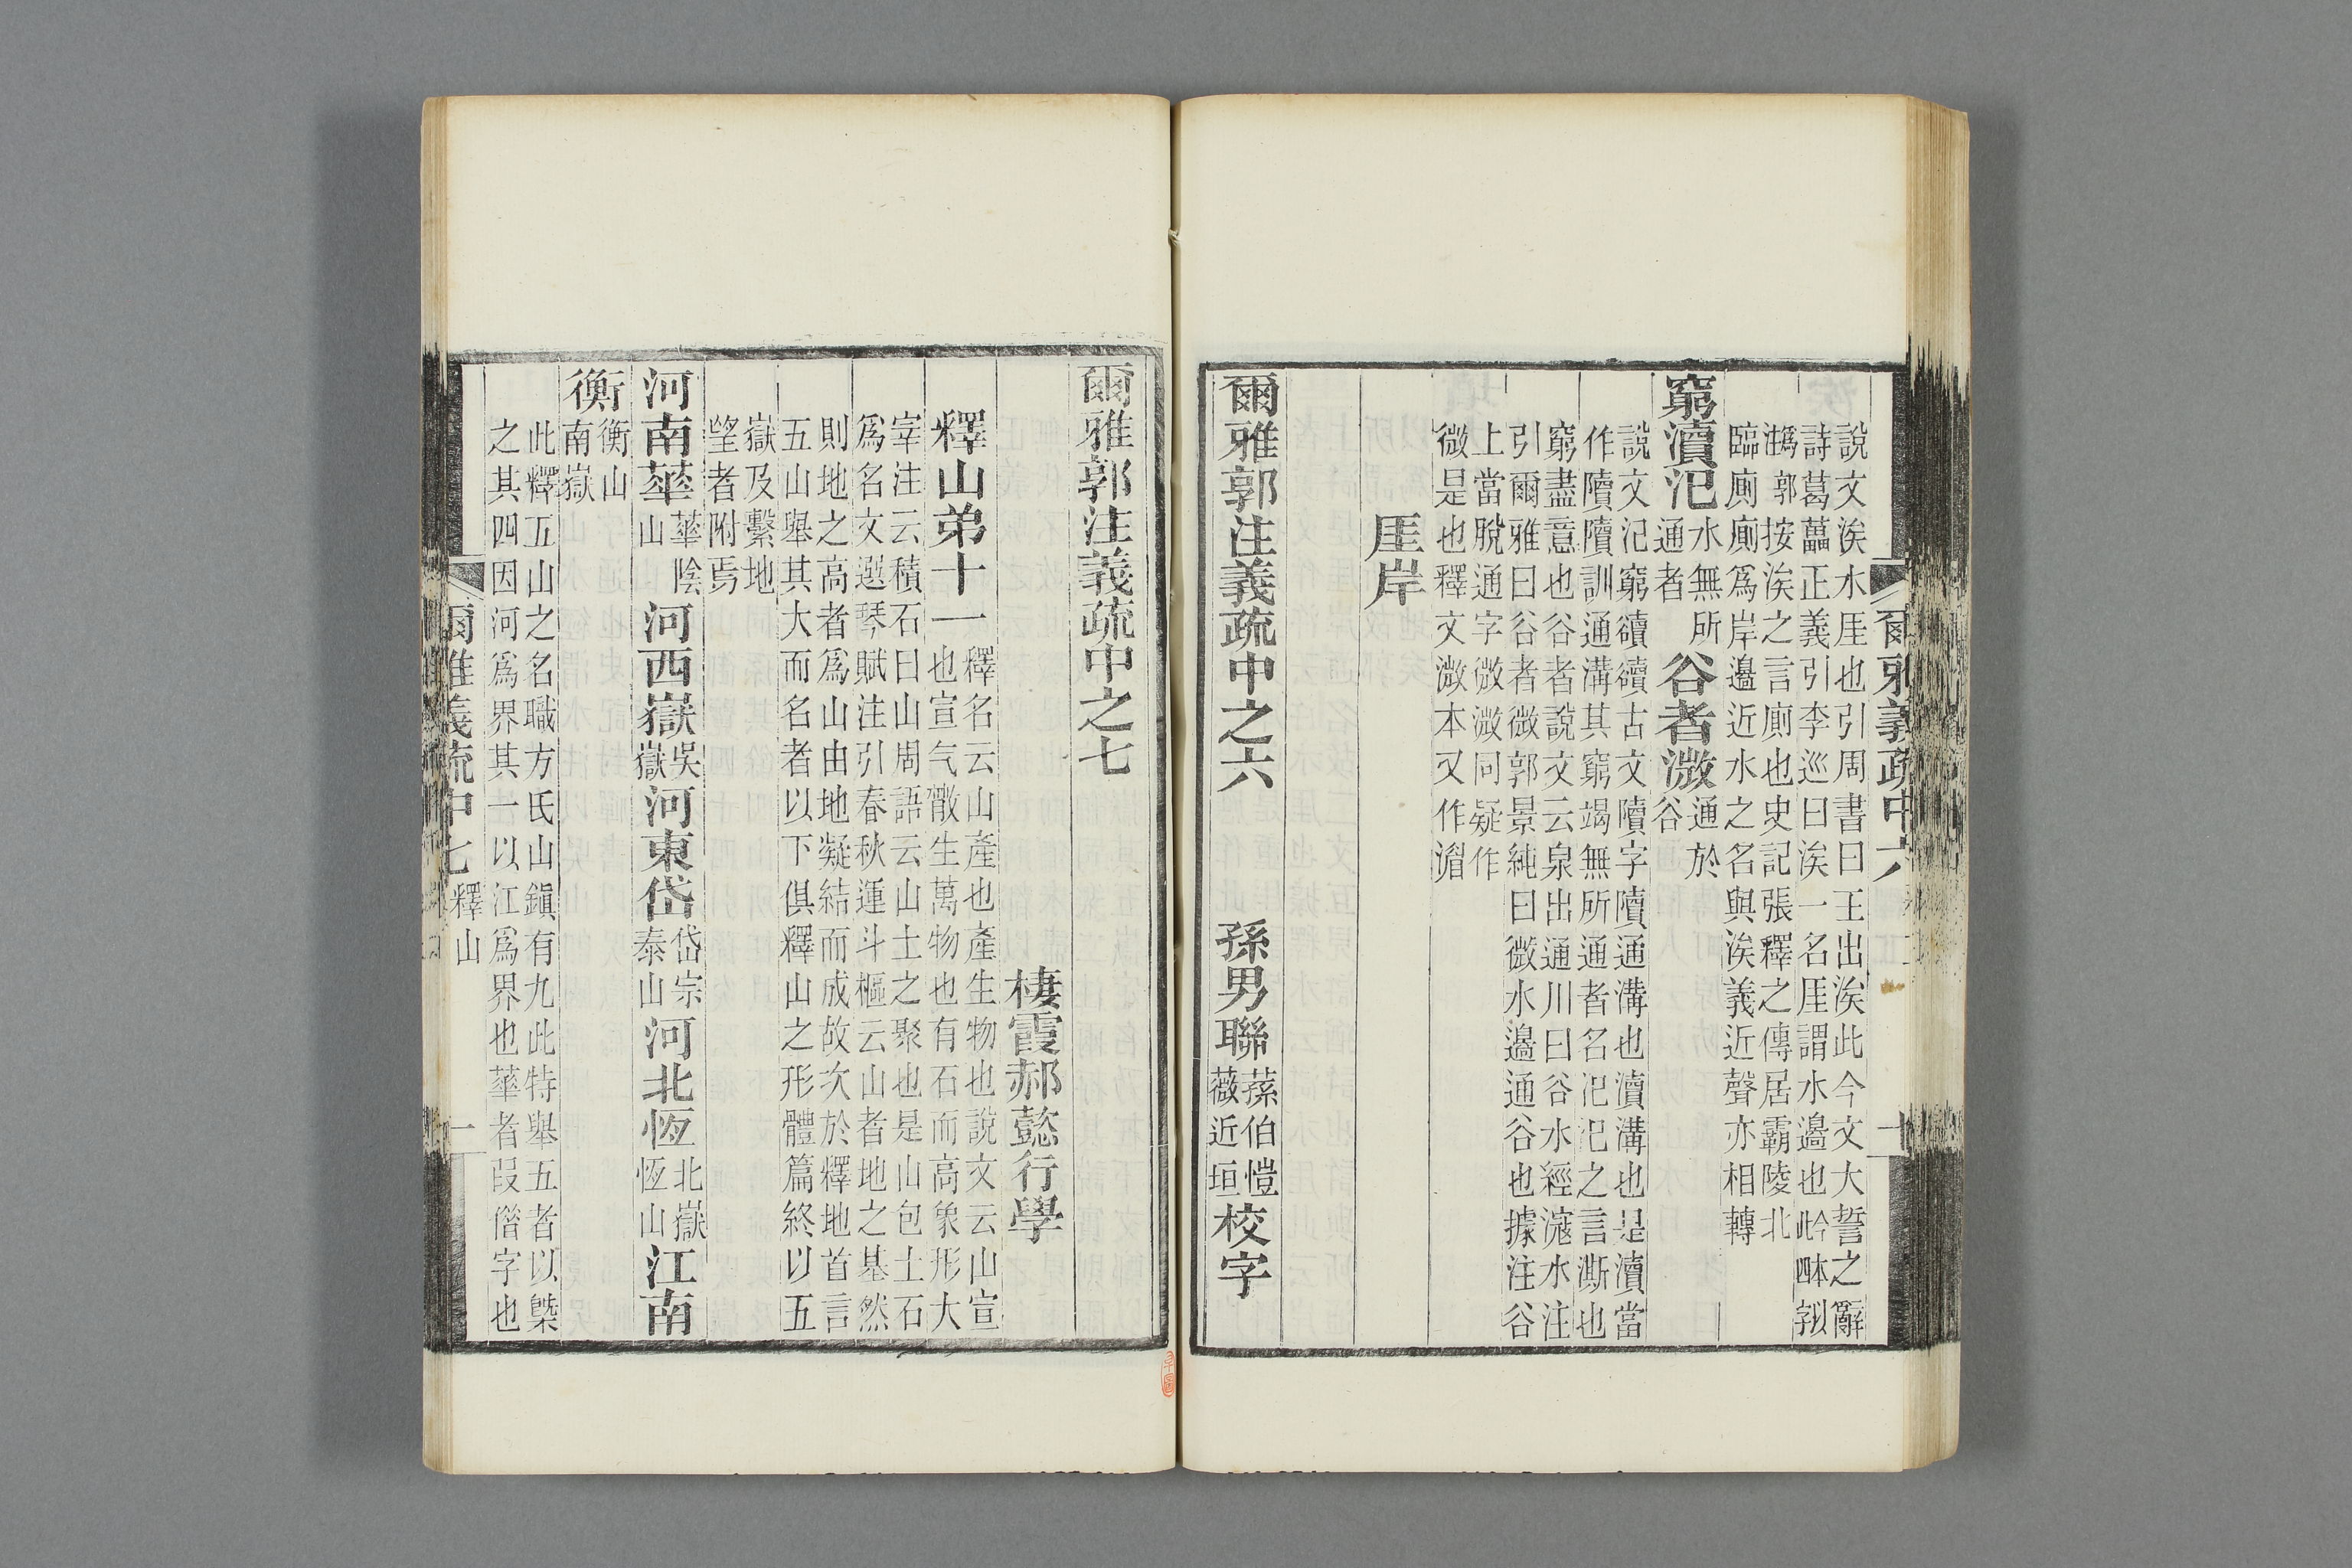 說文涘水厓也引周書曰王出涘此今文大誓之辭
詩葛藟正義引李巡曰涘一名厓謂水邊也
郭按涘之言廁也史記張釋之傳居霸陵北
臨廁廁爲岸邊近水之名與涘義近聲亦相轉
窮瀆汜水無所通者谷者溦通於谷
說文汜窮瀆瀆古文隫字隫通溝也瀆溝也是瀆當
作隫隫訓通溝其窮竭無所通者名汜汜之言澌也
窮盡意也谷者說文云泉出通川曰谷水經滱水注
引爾雅曰谷者微郭景純曰微水邊通谷也據注谷
上當脫通字微溦同疑作
微是也釋文溦本又作湄
厓岸
爾雅郭注義疏中之六
孫男聯蓀伯愷薇近垣校字
爾雅義疏中六
十
爾雅郭注義疏中之七
棲霞郝懿行學
釋山弟十一釋名云山產也產生物也說文云山宣
也宣气㪚生萬物也有石而高象形大
宰注云積石曰山周語云山土之聚也是山包土石
爲名文選琴賦注引春秋運斗樞云山者地之基然
則地之高者爲山由地凝結而成故次於釋地首言
五山舉其大而名者以下俱釋山之形體篇終以五
嶽及繫地
望者附焉
河南華華陰山河西嶽吳嶽河東岱岱宗泰山河北恆北嶽恆山江南
衡衡山南嶽
此釋五山之名職方氏山鎭有九此特舉五者以槩
之其四因河爲界其一以江爲界也華者叚偺字也
爾雅義疏中七 釋山
一